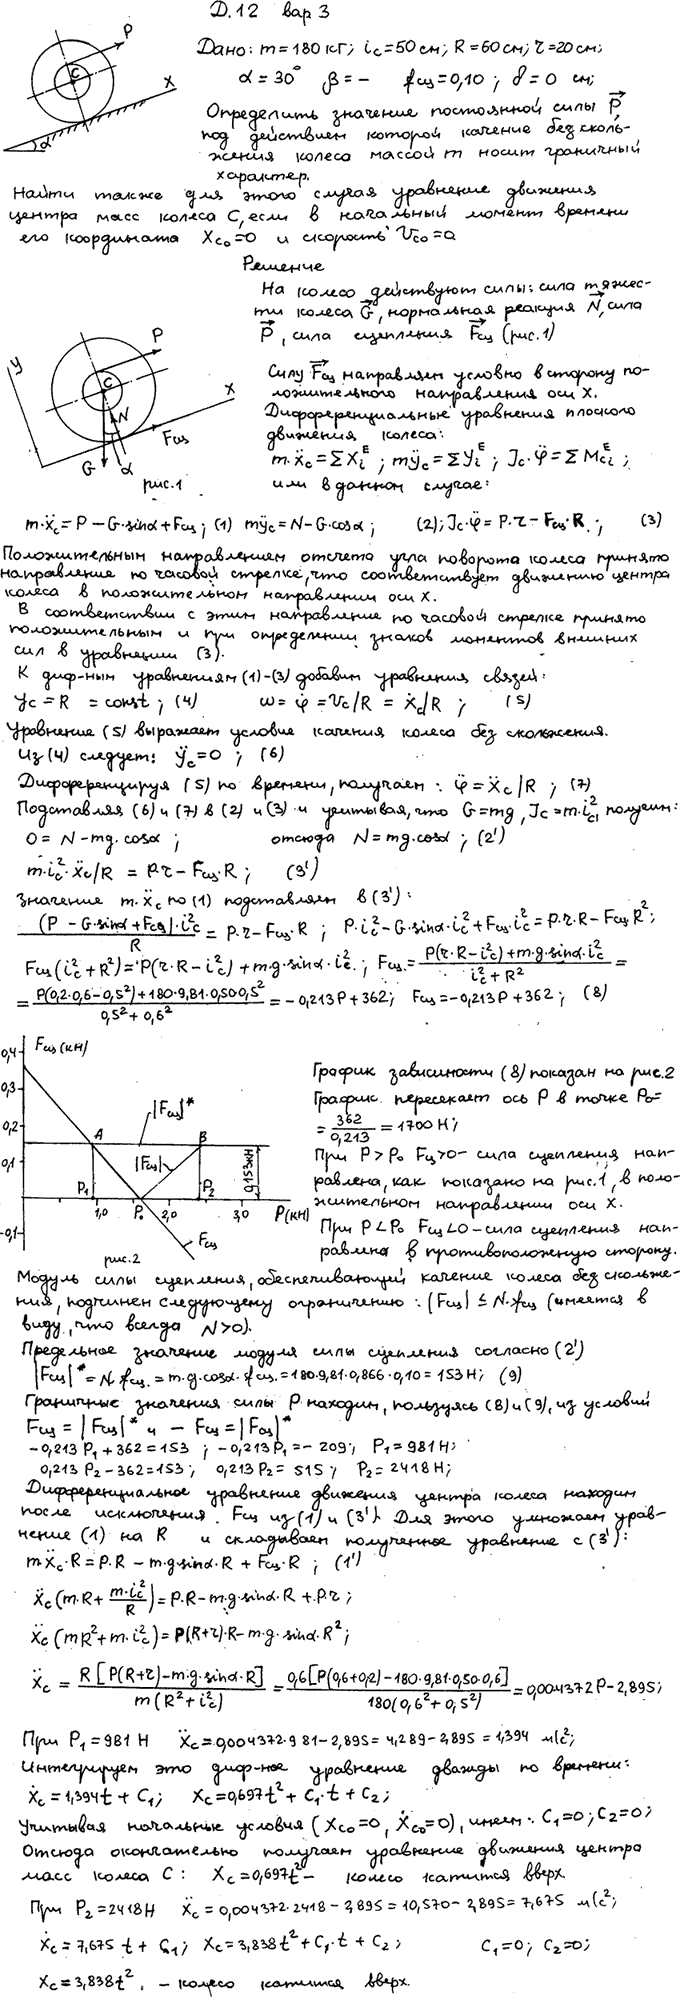 Д.12 вар 3
P
C
X
α
Дано: m=180 кг; ic=50 см; R=60см; r=20см;
α=30° β=– fсц=0,10; δ=0 см;
Определить значение постоянной силы P,
под действием которой качение без сколь-
жения колеса массой m носит граничный
характер.
Найти также для этого случая уравнение движения
центра масс колеса C, если в начальный момент времени
его координата Xco=0 и скорость Vco=0.
Решение
На колесо действуют силы: сила тяжес-
ти колеса G, нормальная реакция N, сила
P, сила сцепления Fсц (рис.1)
y
P
C
X
N
Fсц
G
α
рис.1
Силу Fсц направляем условно в сторону по-
ложительного направления оси X.
Дифференциальные уравнения плоского
движения колеса:
m·ẍc=ΣXiᴱ; mÿc=ΣYiᴱ; Jc·φ̈=ΣMciᴱ;
или в данном случае:
m·ẍc=P–G·sinα+Fсц; (1) mÿc=N–G·cosα; (2); Jc·φ̈=P·r–Fсц·R.; (3)
Положительным направлением отсчета угла поворота колеса принято
направление по часовой стрелке, что соответствует движению центра
колеса в положительном направлении оси X.
В соответствии с этим направление по часовой стрелке принято
положительным и при определении знаков моментов внешних
сил в уравнении (3).
К диф-ным уравнениям (1)-(3) добавим уравнения связей:
yc=R=const; (4) ω=φ̇=Vc/R=ẋc/R; (5)
Уравнение (5) выражает условие качения колеса без скольжения.
Из (4) следует: ÿc=0; (6)
Дифференцируя (5) по времени, получаем: φ̈=ẍc/R; (7)
Подставляя (6) и (7) в (2) и (3) и учитывая, что G=mg, Jc=m·ic², получим:
0=N–mg·cosα; отсюда N=mg·cosα; (2')
m·ic²·ẍc/R=P·r–Fсц·R; (3')
Значение m·ẍc по (1) подставляем в (3'):
(P–G·sinα+Fсц)·ic²/R=P·r–Fсц·R; P·ic²–G·sinα·ic²+Fсц·ic²=P·r·R–FсцR²;
Fсц(ic²+R²)=P(r·R–ic²)+m·g·sinα·ic²; Fсц=(P(r·R–ic²)+m·g·sinα·ic²)/(ic²+R²)=
=(P(0,2·0,6–0,5²)+180·9,81·0,50·0,5²)/(0,5²+0,6²)=–0,213P+362; Fсц=–0,213P+362; (8)
0,4
Fсц(кн)
0,3
0,2
0,1
-0,1
A
B
|Fсц|*
|Fсц|
0,153кН
P1
P2
1,0
P₀
2,0
3,0
P(кН)
Fсц
рис.2
График зависимости (8) показан на рис.2
График пересекает ось P в точке P₀=
=362/0,213=1700 Н;
При P>P₀ Fсц>0– сила сцепления нап-
равлена, как показано на рис.1, в поло-
жительном направлении оси X.
При P<P₀ Fсц<0–сила сцепления нап-
равлена в противоположную сторону.
Модуль силы сцепления, обеспечивающей качение колеса без скольже-
ния, подчинен следующему ограничению: |Fсц|≤N·fсц (имеется в
виду, что всегда N>0).
Предельное значение модуля силы сцепления согласно (2')
|Fсц|*=N·fсц.=m·g·cosα·fсц.=180·9,81·0,866·0,10=153 Н; (9)
Граничные значения силы P находим, пользуясь (8) и (9), из условий
Fсц=|Fсц|* и –Fсц=|Fсц|*
–0,213P1+362=153; –0,213P1=–209; P1=981 Н;
0,213P2–362=153; 0,213P2=515; P2=2418 Н;
Дифференциальное уравнение движения центра колеса находим
после исключения Fсц из (1) и (3'). Для этого умножаем урав-
нение (1) на R и складываем полученное уравнение с (3'):
mẍc·R=P·R–m·g·sinα·R+Fсц·R; (1')
ẍc(m·R+m·ic²/R)=P·R–m·g·sinα·R+P·r;
ẍc(mR²+m·ic²)=P(R+r)·R–m·g·sinα·R²;
ẍc=R[P(R+r)–m·g·sinα·R]/m(R²+ic²)=0,6[P(0,6+0,2)–180·9,81·0,50·0,6]/180(0,6²+0,5²)=0,004372P–2,895;
При P1=981 Н ẍc=0,004372·981–2,895=4,289–2,895=1,394 м/с²;
Интегрируем это диф-ное уравнение дважды по времени:
ẋc=1,394t+C1; xc=0,697t²+C1·t+C2;
Учитывая начальные условия (Xco=0, Ẋco=0), имеем: C1=0; C2=0;
Отсюда окончательно получаем уравнение движения центра
масс колеса C: xc=0,697t²– колесо катится вверх
При P2=2418Н ẍc=0,004372·2418–2,895=10,570–2,895=7,675 м/с²;
ẋc=7,675t+C1; xc=3,838t²+C1·t+C2; C1=0; C2=0;
xc=3,838t². – колесо катится вверх.